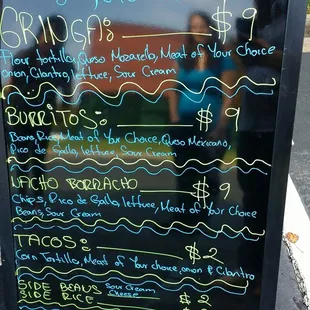 GRINGA: $9
Flour tortilla, Queso Mozarella, Meat of Your Choice
onion, Cilantro, lettuce, Sour Cream
BURRITOS: $9
Beans, Rice, Meat of Your Choice, Queso Mexicano,
Pico de Gallo, lettuce, Sour Cream
NACHO BORRACHO $9
Chips, Pico de Gallo lettuce, Meat of Your Choice
Beans, Sour Cream
TACOS: $2
Corn Tortilla, Meat of Your choice, onion & Cilantro
SIDE BEANS Sour Cream
SIDE RICE Cheese $2